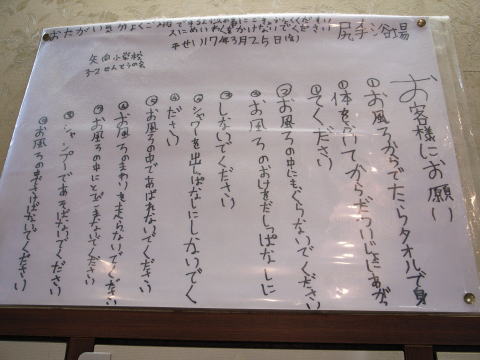 おたがい気分よくごう浴できるように
人にめいわくをかけないでください
平せい17年3月25日(金)
尻手浴場
矢向小学校
3-2 せんとうの会
お客様にお願い
①お風ろからでたらタオルで身
①体をふいてからだついじょにあが
①てください
②お風ろの中にもぐらないでください
③お風ろのおけをだしっぱなしに
③しないでください
④シャワーを出しっぱなしにしないでく
④ださい
⑤お風ろの中であばれないでください
⑥お風ろのまわりを走らないでください
⑦お風ろの中にとびこまないでください
⑧シャンプーであそばないでください
⑨お風ろの中でさけばないでください